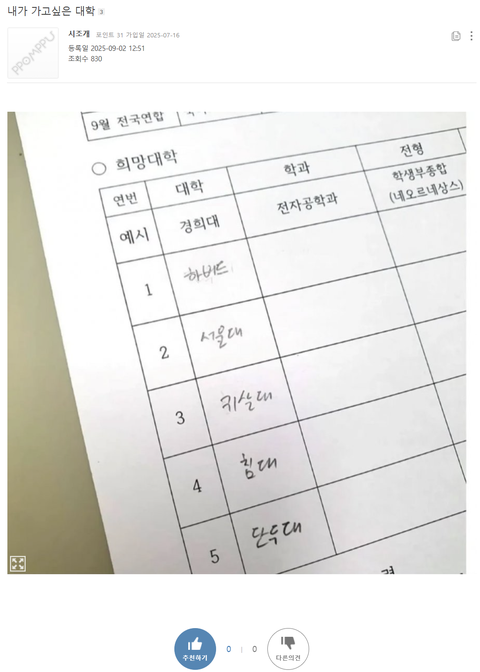 내가 가고싶은 대학 3
시조개 포인트 31 가입일 2025-07-16
등록일 2025-09-02 12:51
조회수 830
PPOMPPU
9월 전국연합
○ 희망대학
연번 대학 학과 전형
예시 경희대 전자공학과 학생부종합
(네오르네상스)
1 하버드
2 서울대
3 귀살대
4 침대
5 단두대
추천하기 0 0 다른의견